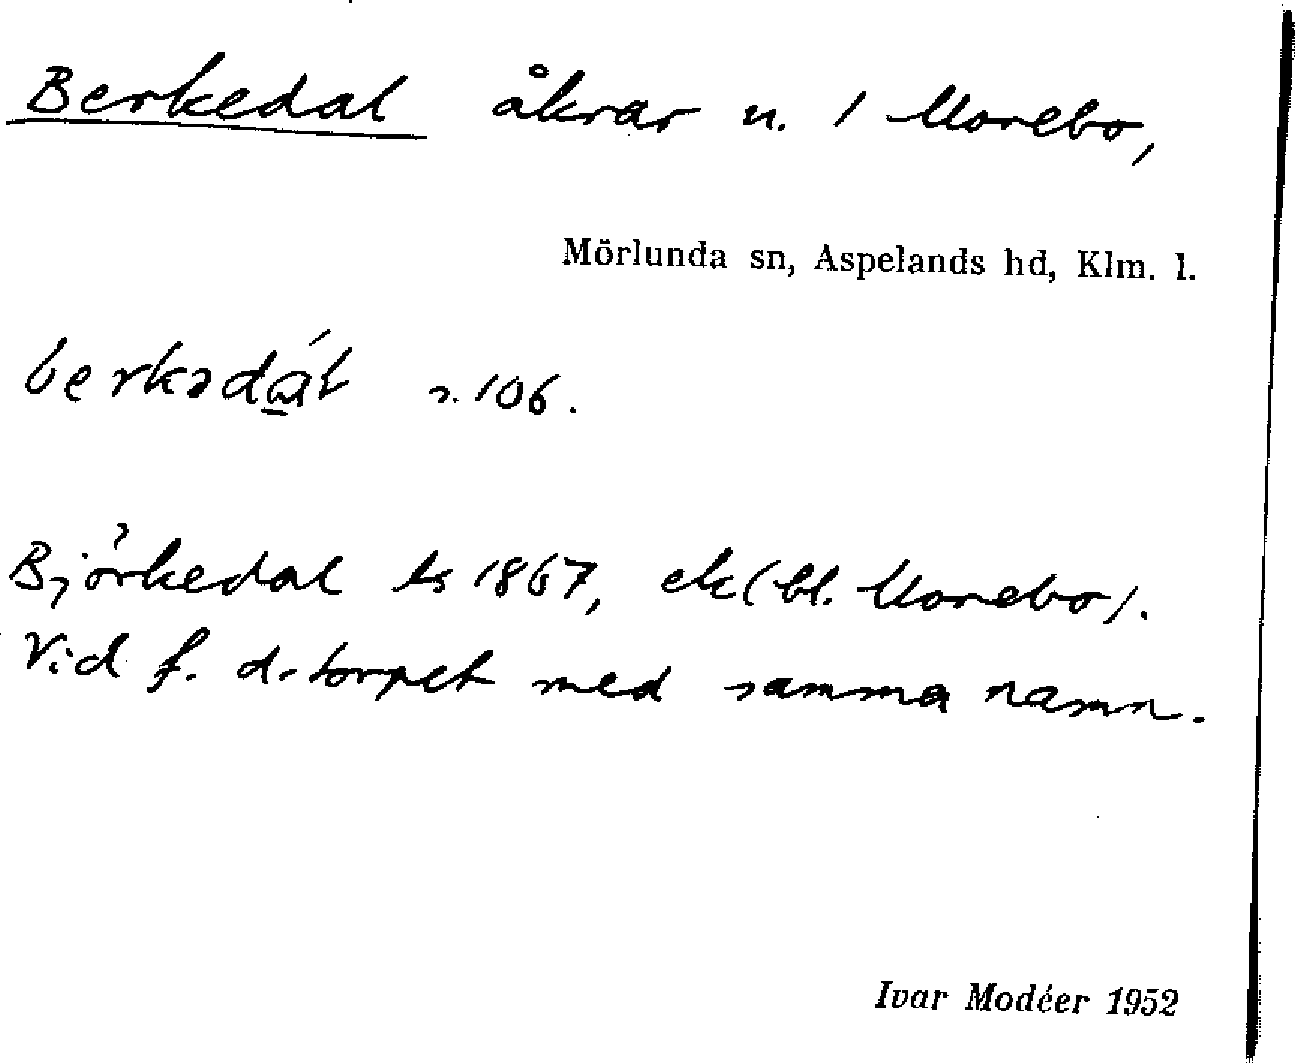 Berkedal åkrar n. 1 Morebo,
Mörlunda sn, Aspelands hd, Klm. l.
berkədál s. 106.
Björkedal ls 1867, ek (bl. Morebo).
Vid f. d. torpet med samma namn.
Ivar Modéer 1952